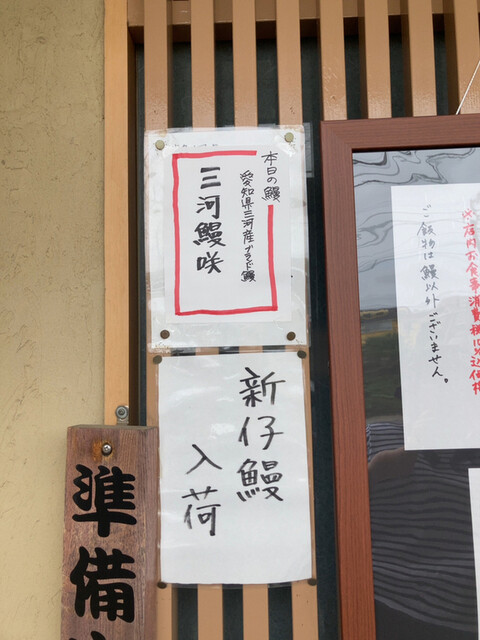 本日の鰻
愛知県三河産ブランド鰻
三河鰻咲
新仔鰻
入荷
準備
※店内お食事消費税10%込価格
ご飯物は鰻以外ございません。